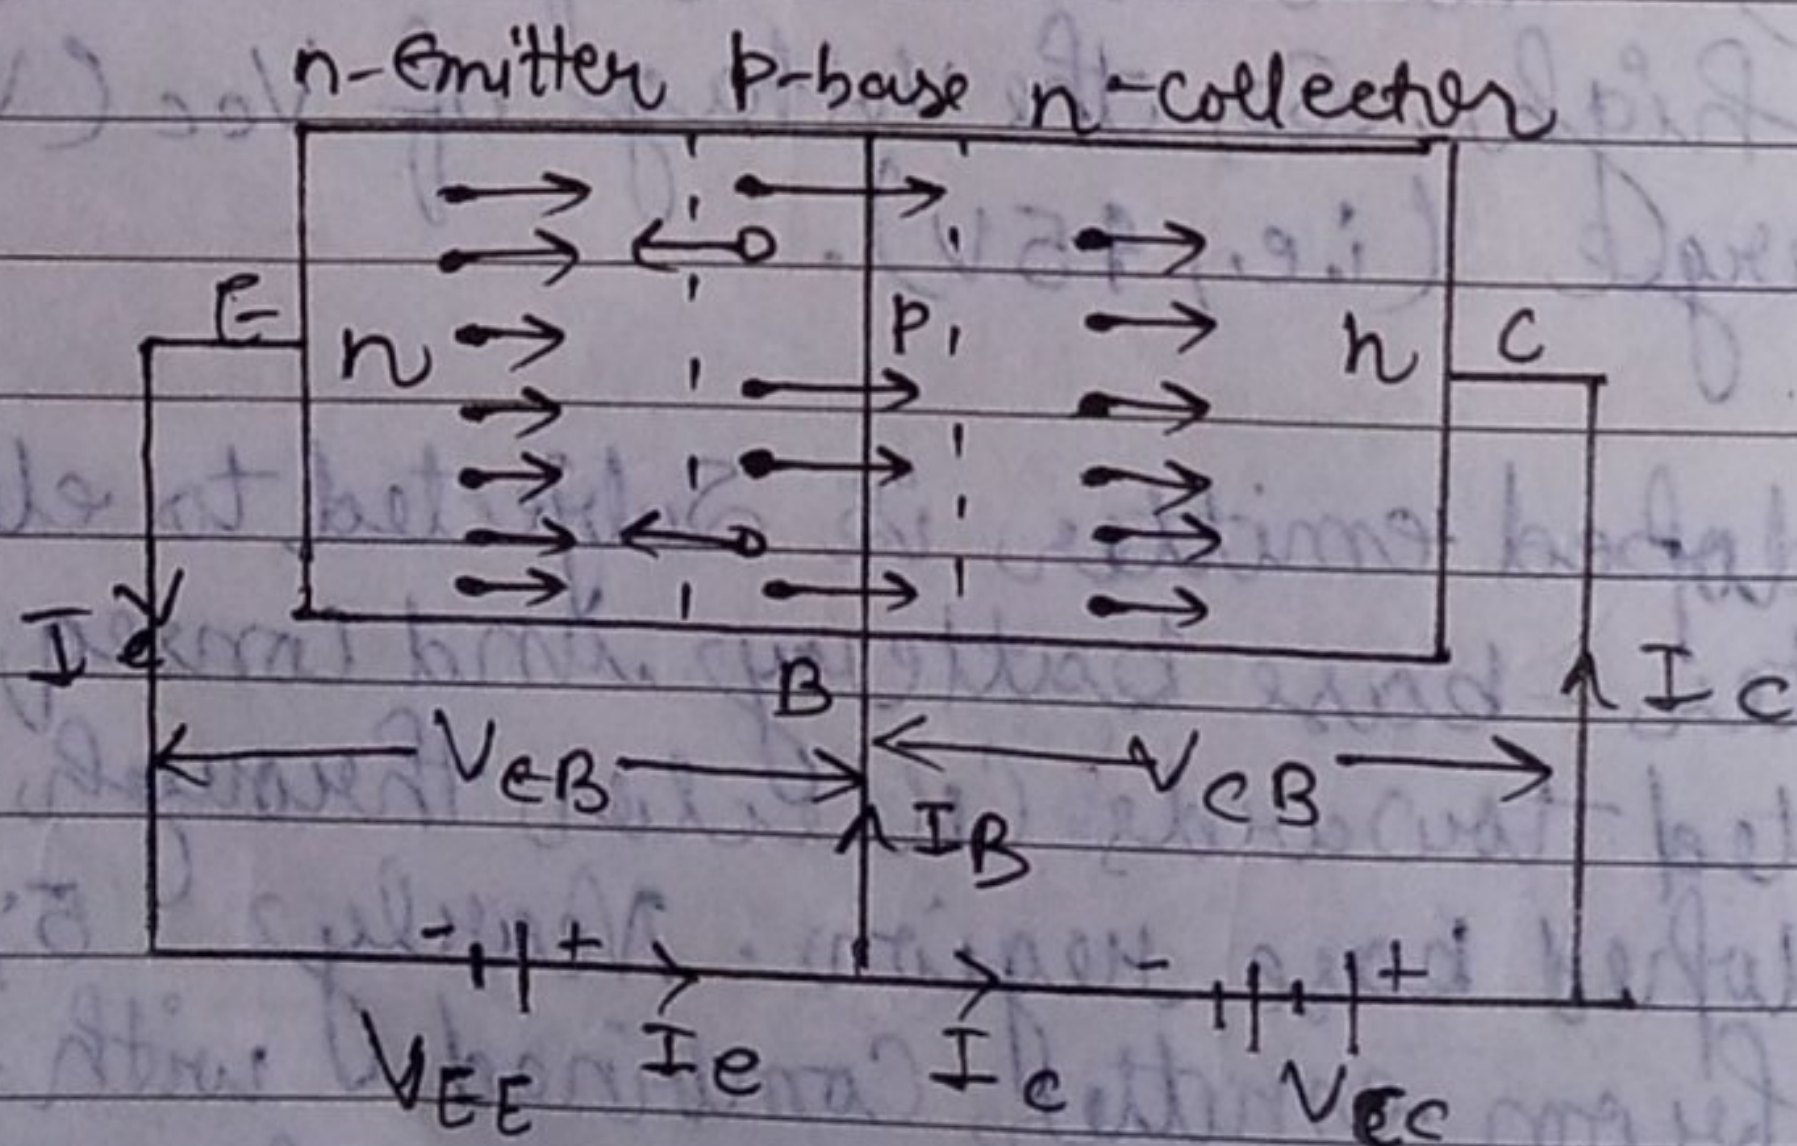 n-Emitter p-base n-collector
E
n
P
n
C
Ie
B
Ic
VeB
VCB
IB
- +
- +
VEE
Ie
Ic